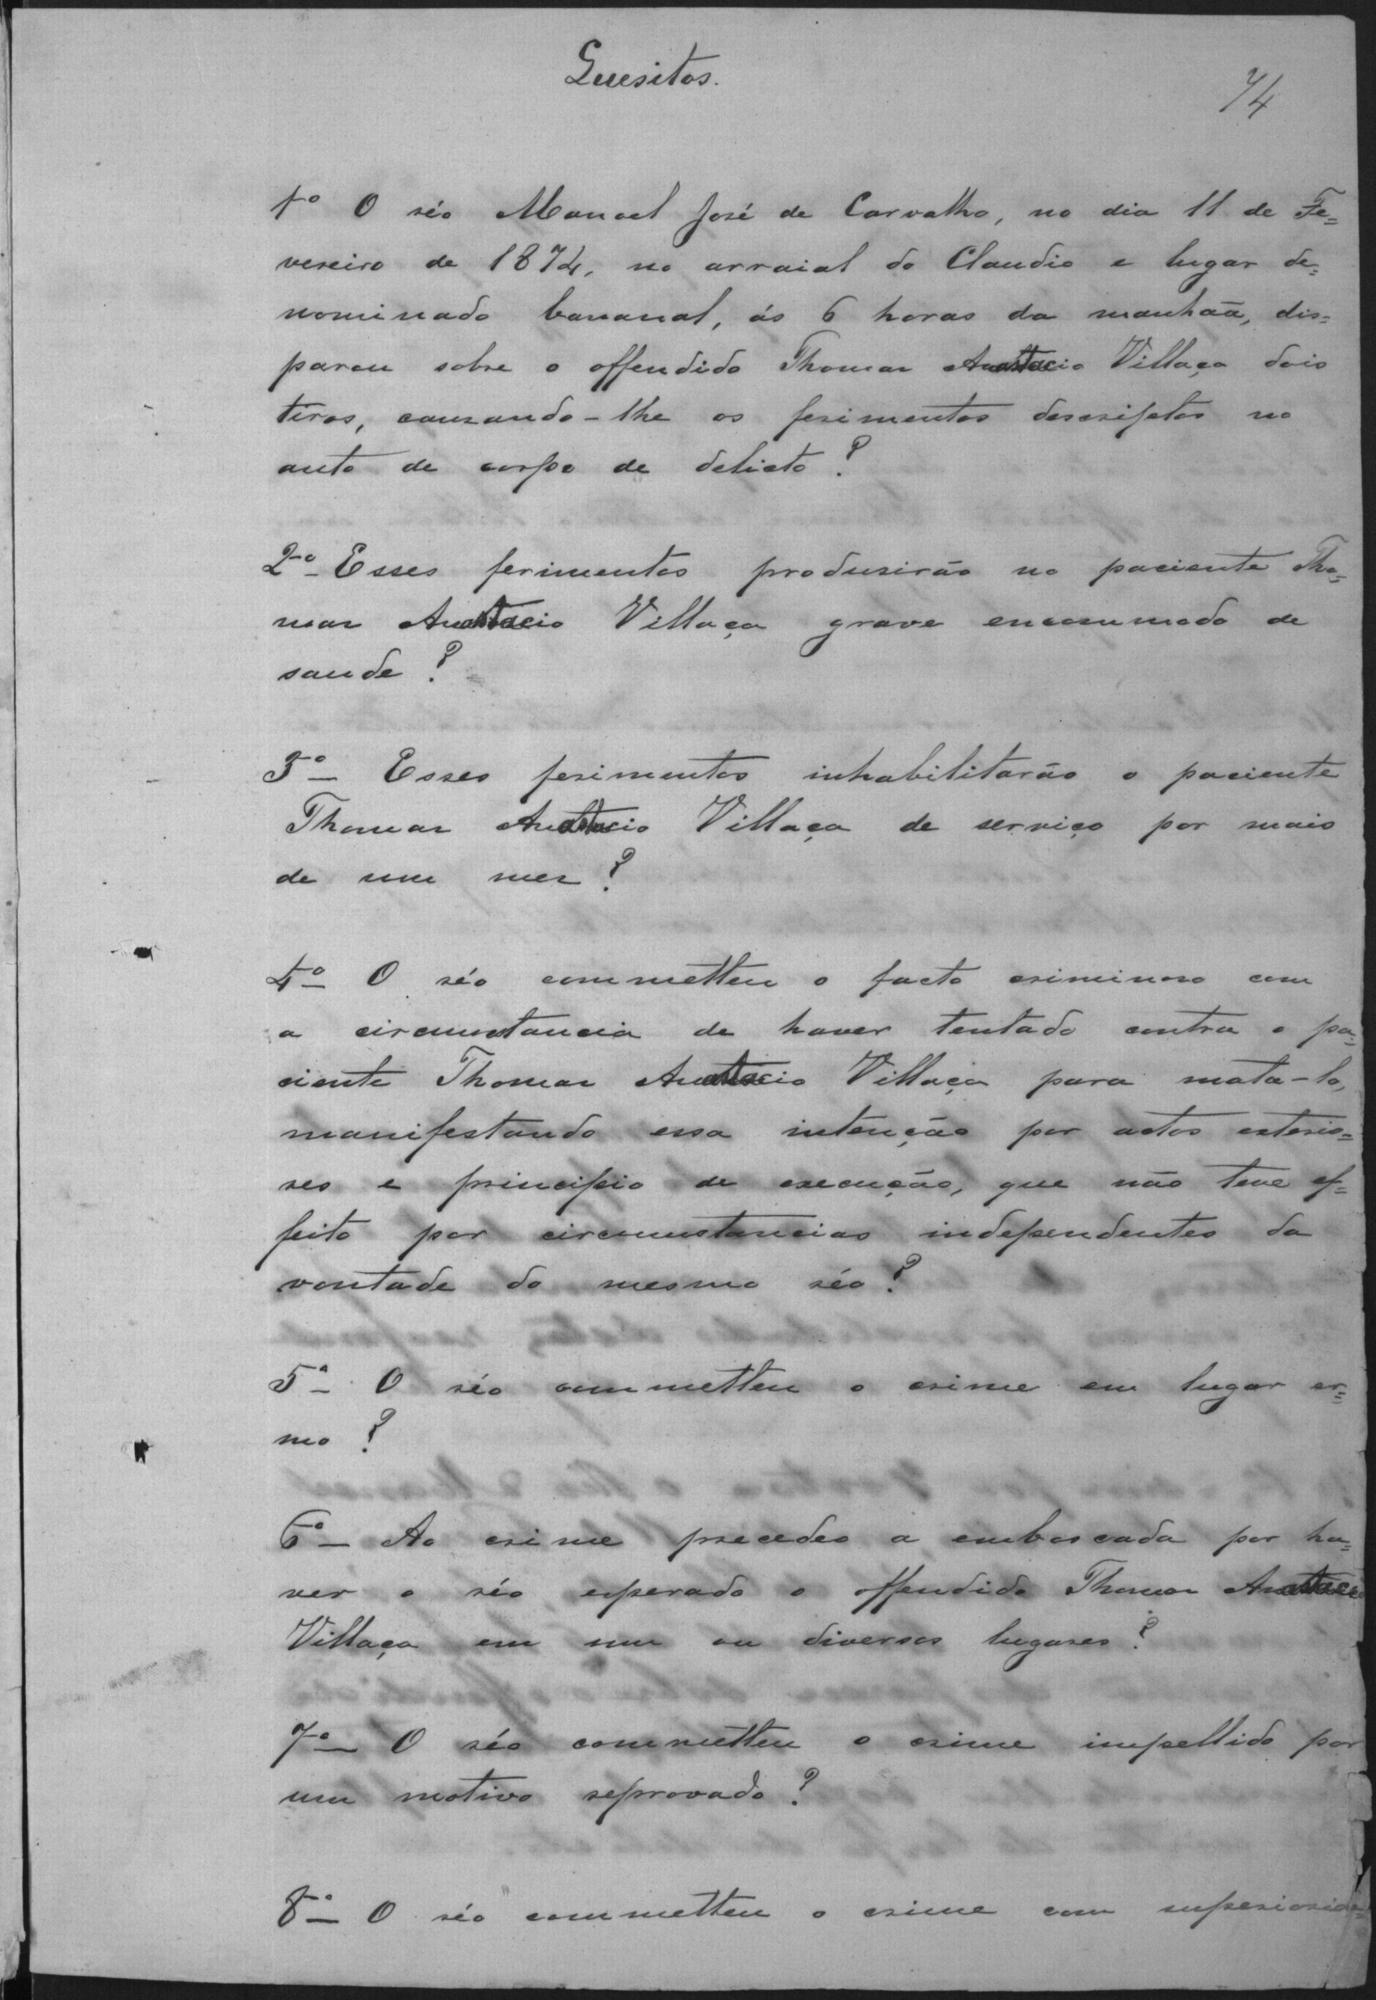 Quesitos.
74
1º O réo Manoel José de Carvalho, no dia 11 de Fe=
vereiro de 1874, no arraial do Claudio e lugar de=
nominado bananal, ás 6 horas da manhãa, dis=
parou sobre o offendido Thomaz Anastacio Villaça dois
tiros, causando-lhe os ferimentos descriptos no
auto de corpo de delicto?
2º Esses ferimentos produsirão no paciente Tho=
maz Anastacio Villaça grave encommodo de
saude?
3º Esses ferimentos inhabilitarão o paciente
Thomaz Anastacio Villaça de serviço por mais
de um mez?
4º O réo commetteu o facto criminoso com
a circumstancia de haver tentado contra o pa=
ciente Thomaz Anastacio Villaça para mata-lo,
manifestando essa intenção por actos exterio=
res e principio de execução, que não teve ef=
feito por circumstancias independentes da
vontade do mesmo réo?
5º O réo commetteu o crime em lugar er=
mo?
6º Ao crime precedeo a emboscada por ha=
ver o réo esperado o offendido Thomaz Anastacio
Villaça em um ou diversos lugares?
7º O réo commetteu o crime impellido por
um motivo reprovado?
8º O réo commetteu o crime com superiorida=